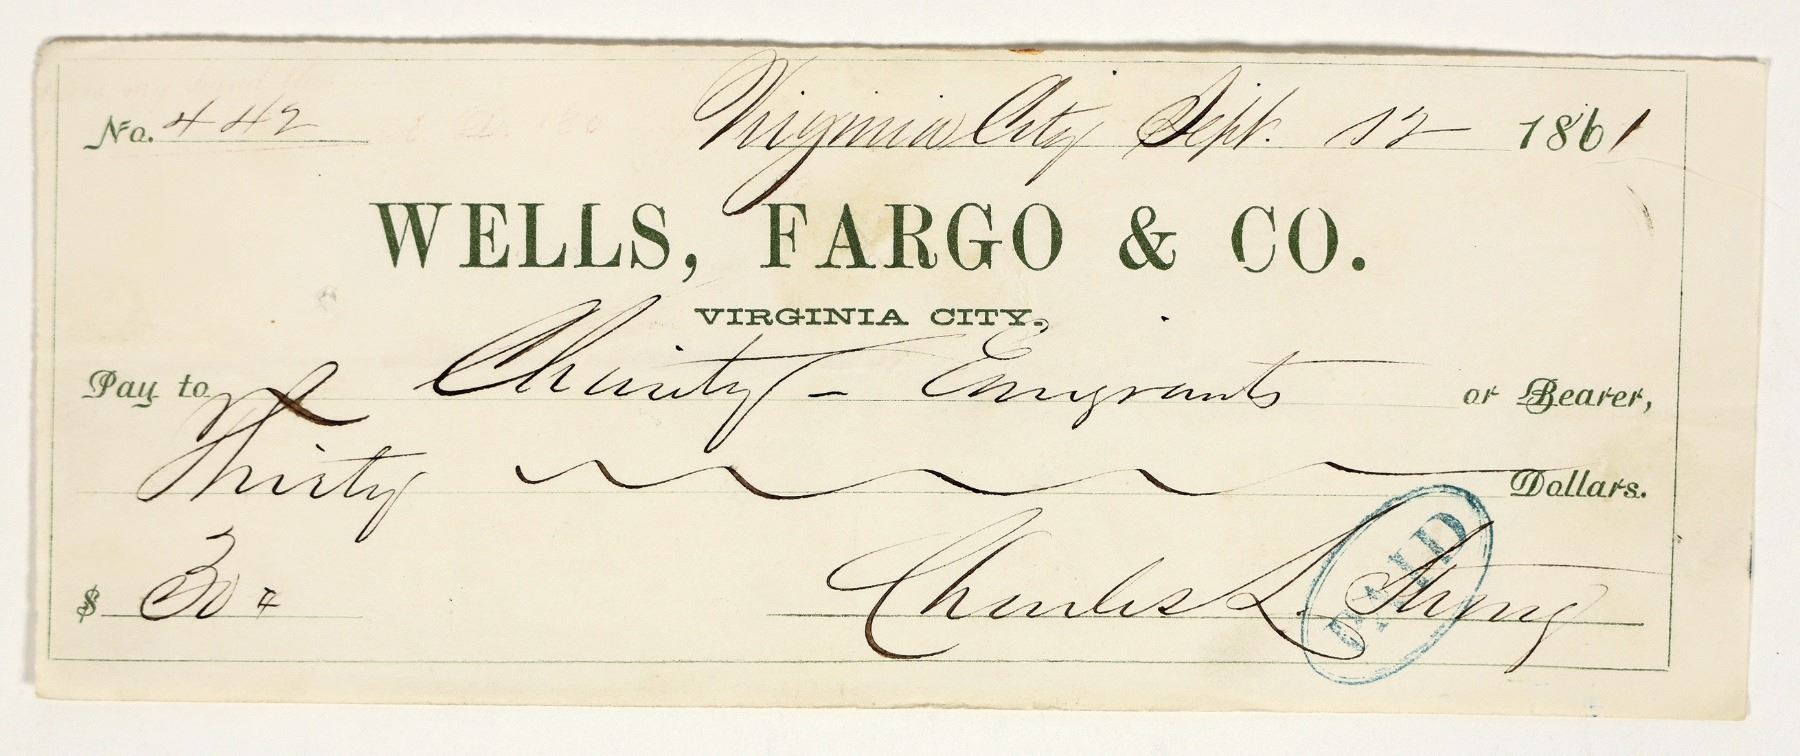 No. 442 Virginia City Sept. 12 1861
WELLS, FARGO & CO.
VIRGINIA CITY.
Pay to Charity - Emigrants or Bearer,
Thirty Dollars.
$ 30
Charles L. Strong
PAID